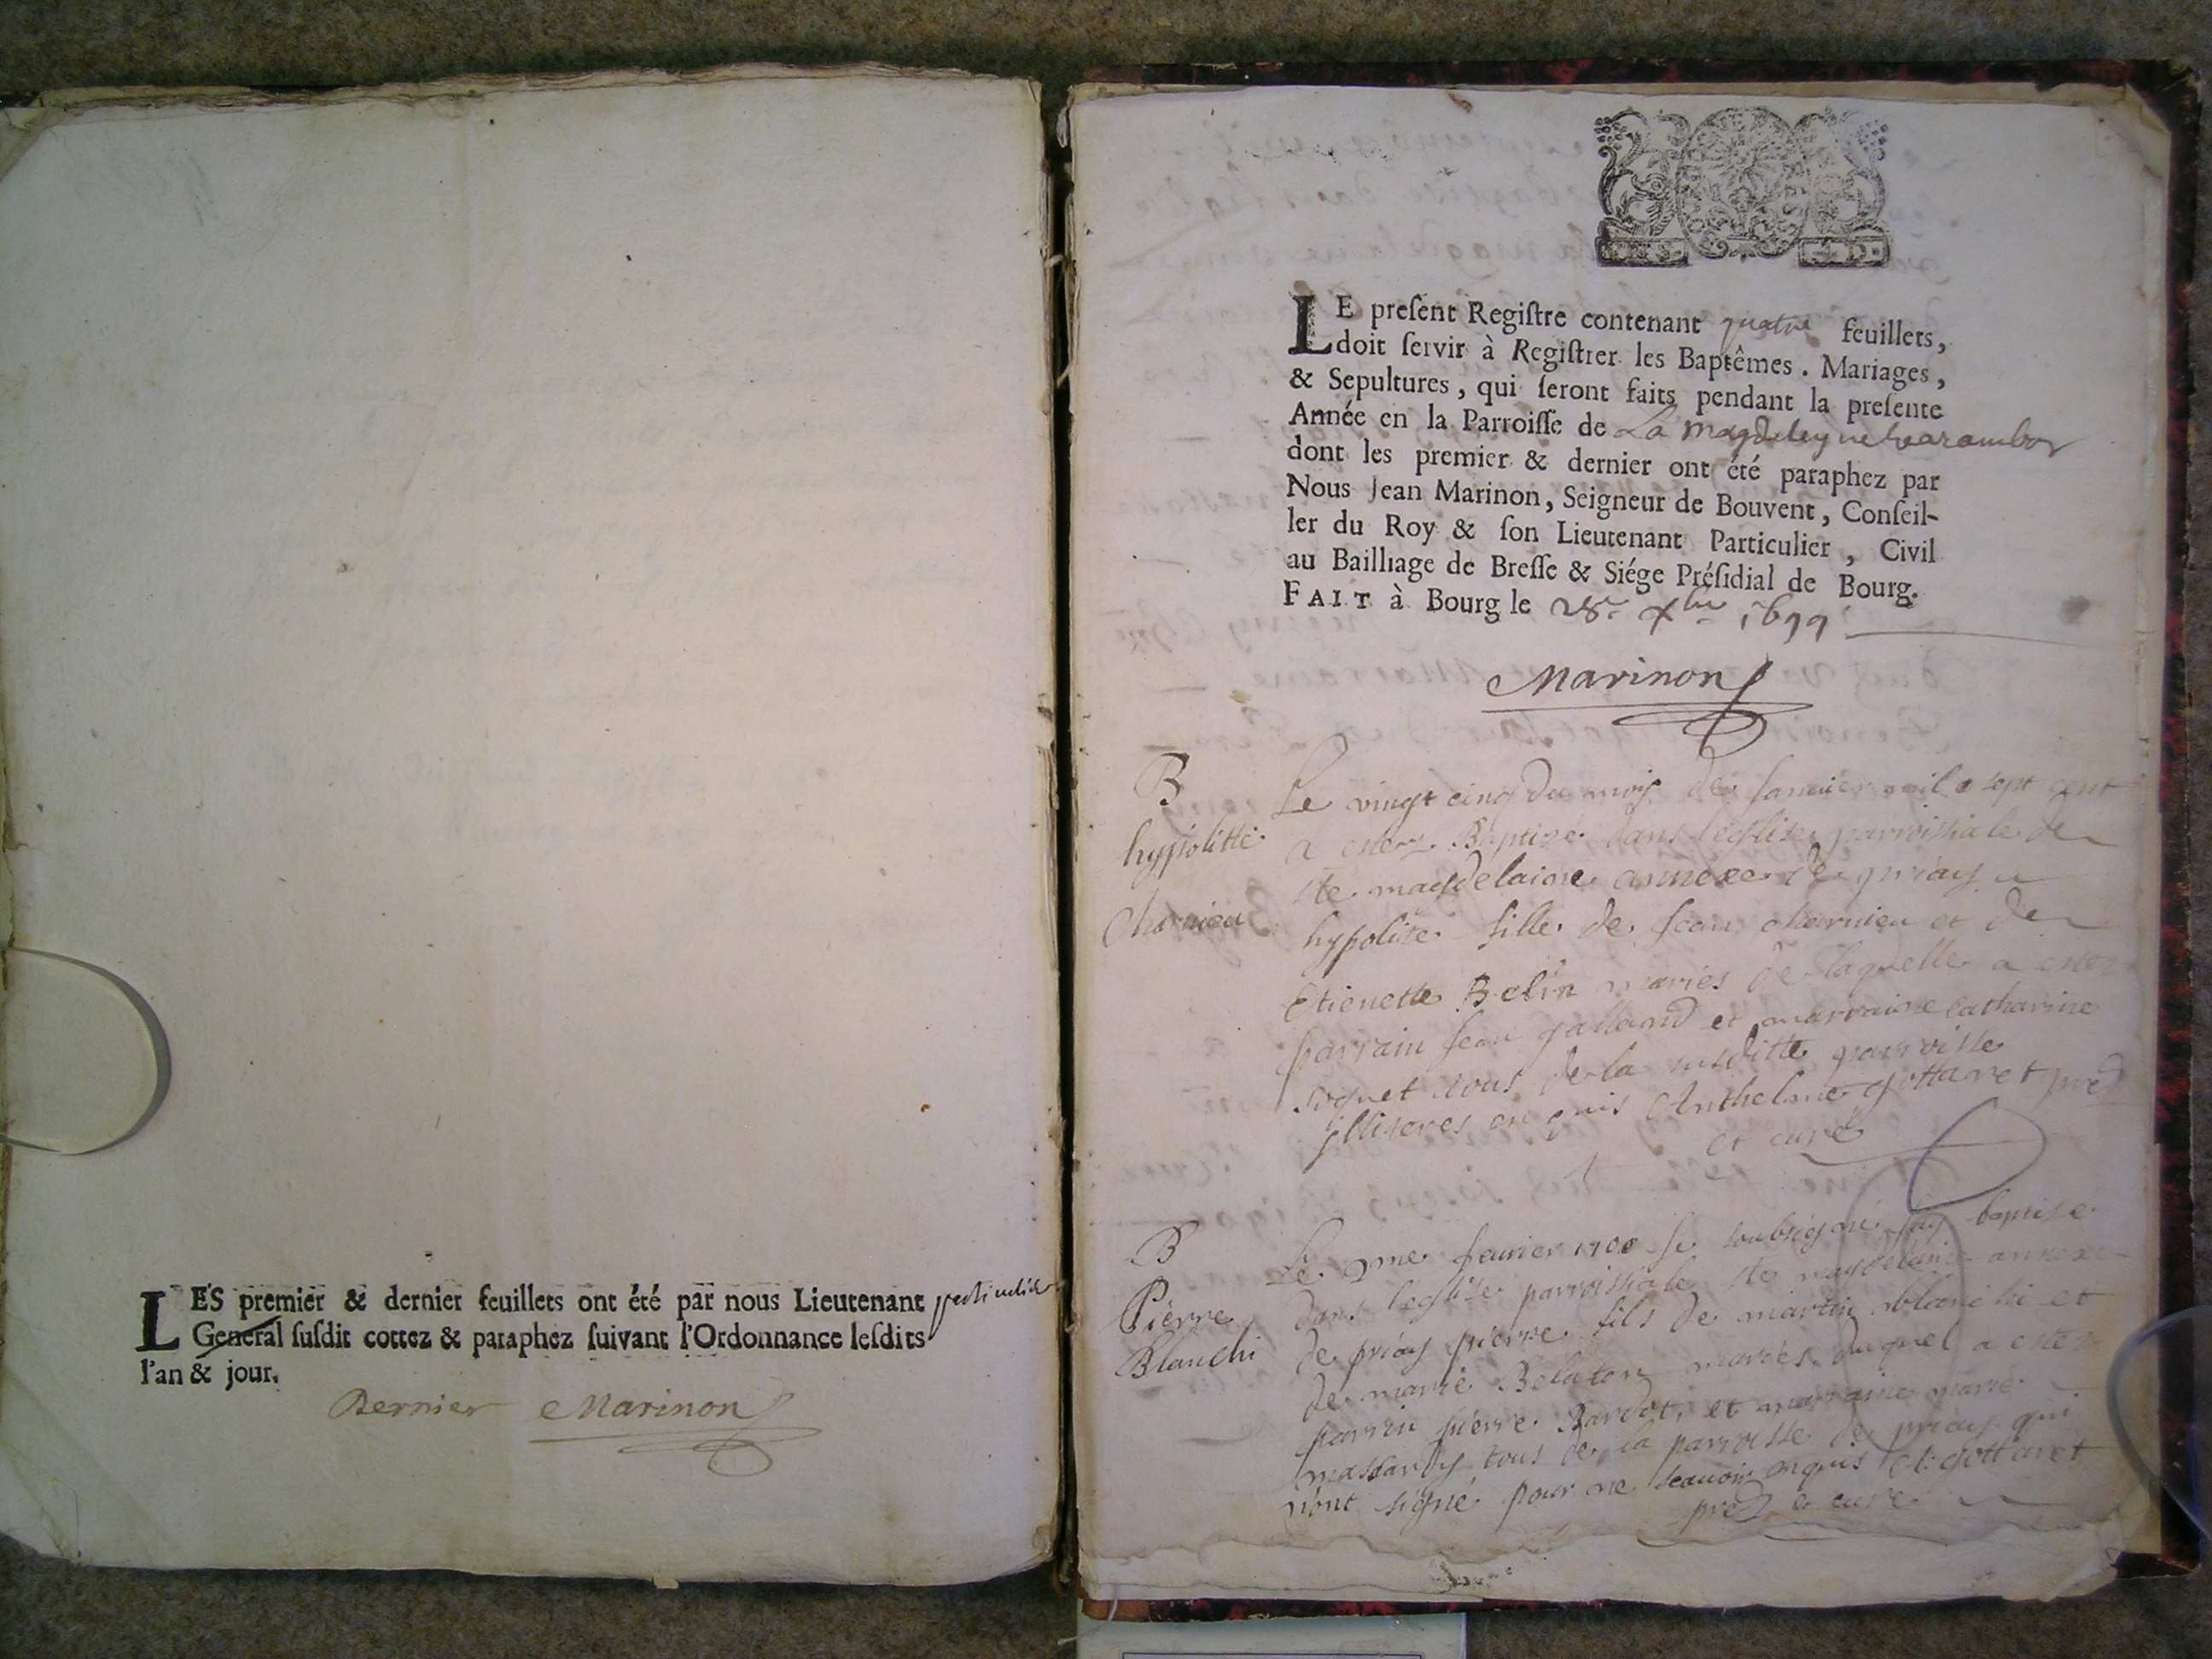 LES premier & dernier feuillets ont été par nous Lieutenant particulier
General susdit cottez & paraphez suivant l'Ordonnance lesdits
l'an & jour.
Dernier Marinon
LE present Registre contenant quatre feuillets,
doit servir à Registrer les Baptêmes. Mariages,
& Sepultures, qui seront faits pendant la presente
Année en la Parroisse de La Magdeleyne Varambon
dont les premier & dernier ont été paraphez par
Nous Jean Marinon, Seigneur de Bouvent, Conseil-
ler du Roy & son Lieutenant Particulier, Civil
au Bailliage de Bresse & Siége Présidial de Bourg.
FAIT à Bourg le 28e xbre 1699
Marinon
B
hyppolitte
Charnieu
Le vingt cinq du mois de Januier mil sept cent
a ester Baptizé dans l'eglise parroissiale de
ste magdelaine annexe de priay
hypolite fille de Jean charnieu et de
Etienette Belin mariés de laquelle a ester
parrain Jean galland et marraine catharine
soquet tous de la susditte parroisse
illiteres enquis Anthelme gottaret pre
et curé
B
Pierre
Blanchi
Le 9me feurier 1700 Je soubsigné ay baptisé
dans l'eglise parroissiale ste magdelaine annexe
de priay pierre fils de martin blanchi et
de marie Belaton mariés duquel a ester
parrin pierre Jardot et marraine marie
tous de la parroisse de priay qui
n'ont signé pour ne scauoir enquis A: gottaret
pre et curé